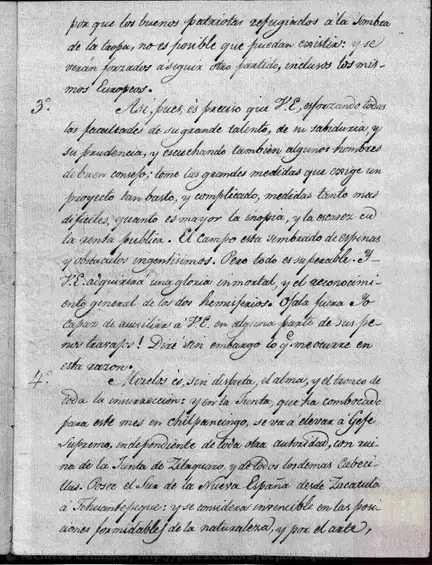 por que los buenos patriotas refugiados à la sombra
de la tropa, no es posible que puedan existir: y se
verán forzados a seguir otro partido, inclusos los mis-
mos Europeos.
3.° Asi, pues, es preciso que V.E. esforzando todas
las facultades de su grande talento, de su sabiduria, y
su prudencia, y escuchando tambien algunos hombres
de buen consejo; tome las grandes medidas que exige un
proyecto tan basto, y complicado, medidas tanto mas
dificiles, quanto es mayor la inopia, y la escasez en
la renta publica. El Campo esta sembrado de espinas
y obstaculos ingentisimos. Pero todo es superable. Y
V.E. adquirirá una gloria inmortal, y el reconocimi-
ento general de los dos hemisferios. Ojala fuera Yo
capaz de auxiliar à V.E. en alguna parte de sus pe-
nosos travajos! Diré sin embargo lo q.e me ocurre en
esta razon.
4.° Morelos es, sin disputa, el alma, y el tronco de
toda la insurreccion: y en la Junta, que ha combocado
para este mes en Chilpancingo, se va á elevar à Gefe
Supremo, independiente de toda otra autoridad, con rui-
na de la Junta de Zitaquaro, y de todos los demas Cabeci-
llas. Posee el Sur de la Nueva España desde Zacatula
à Tehuantepeque: y se considera invencible en las posi-
ciones formidables de la naturaleza, y por el arte,